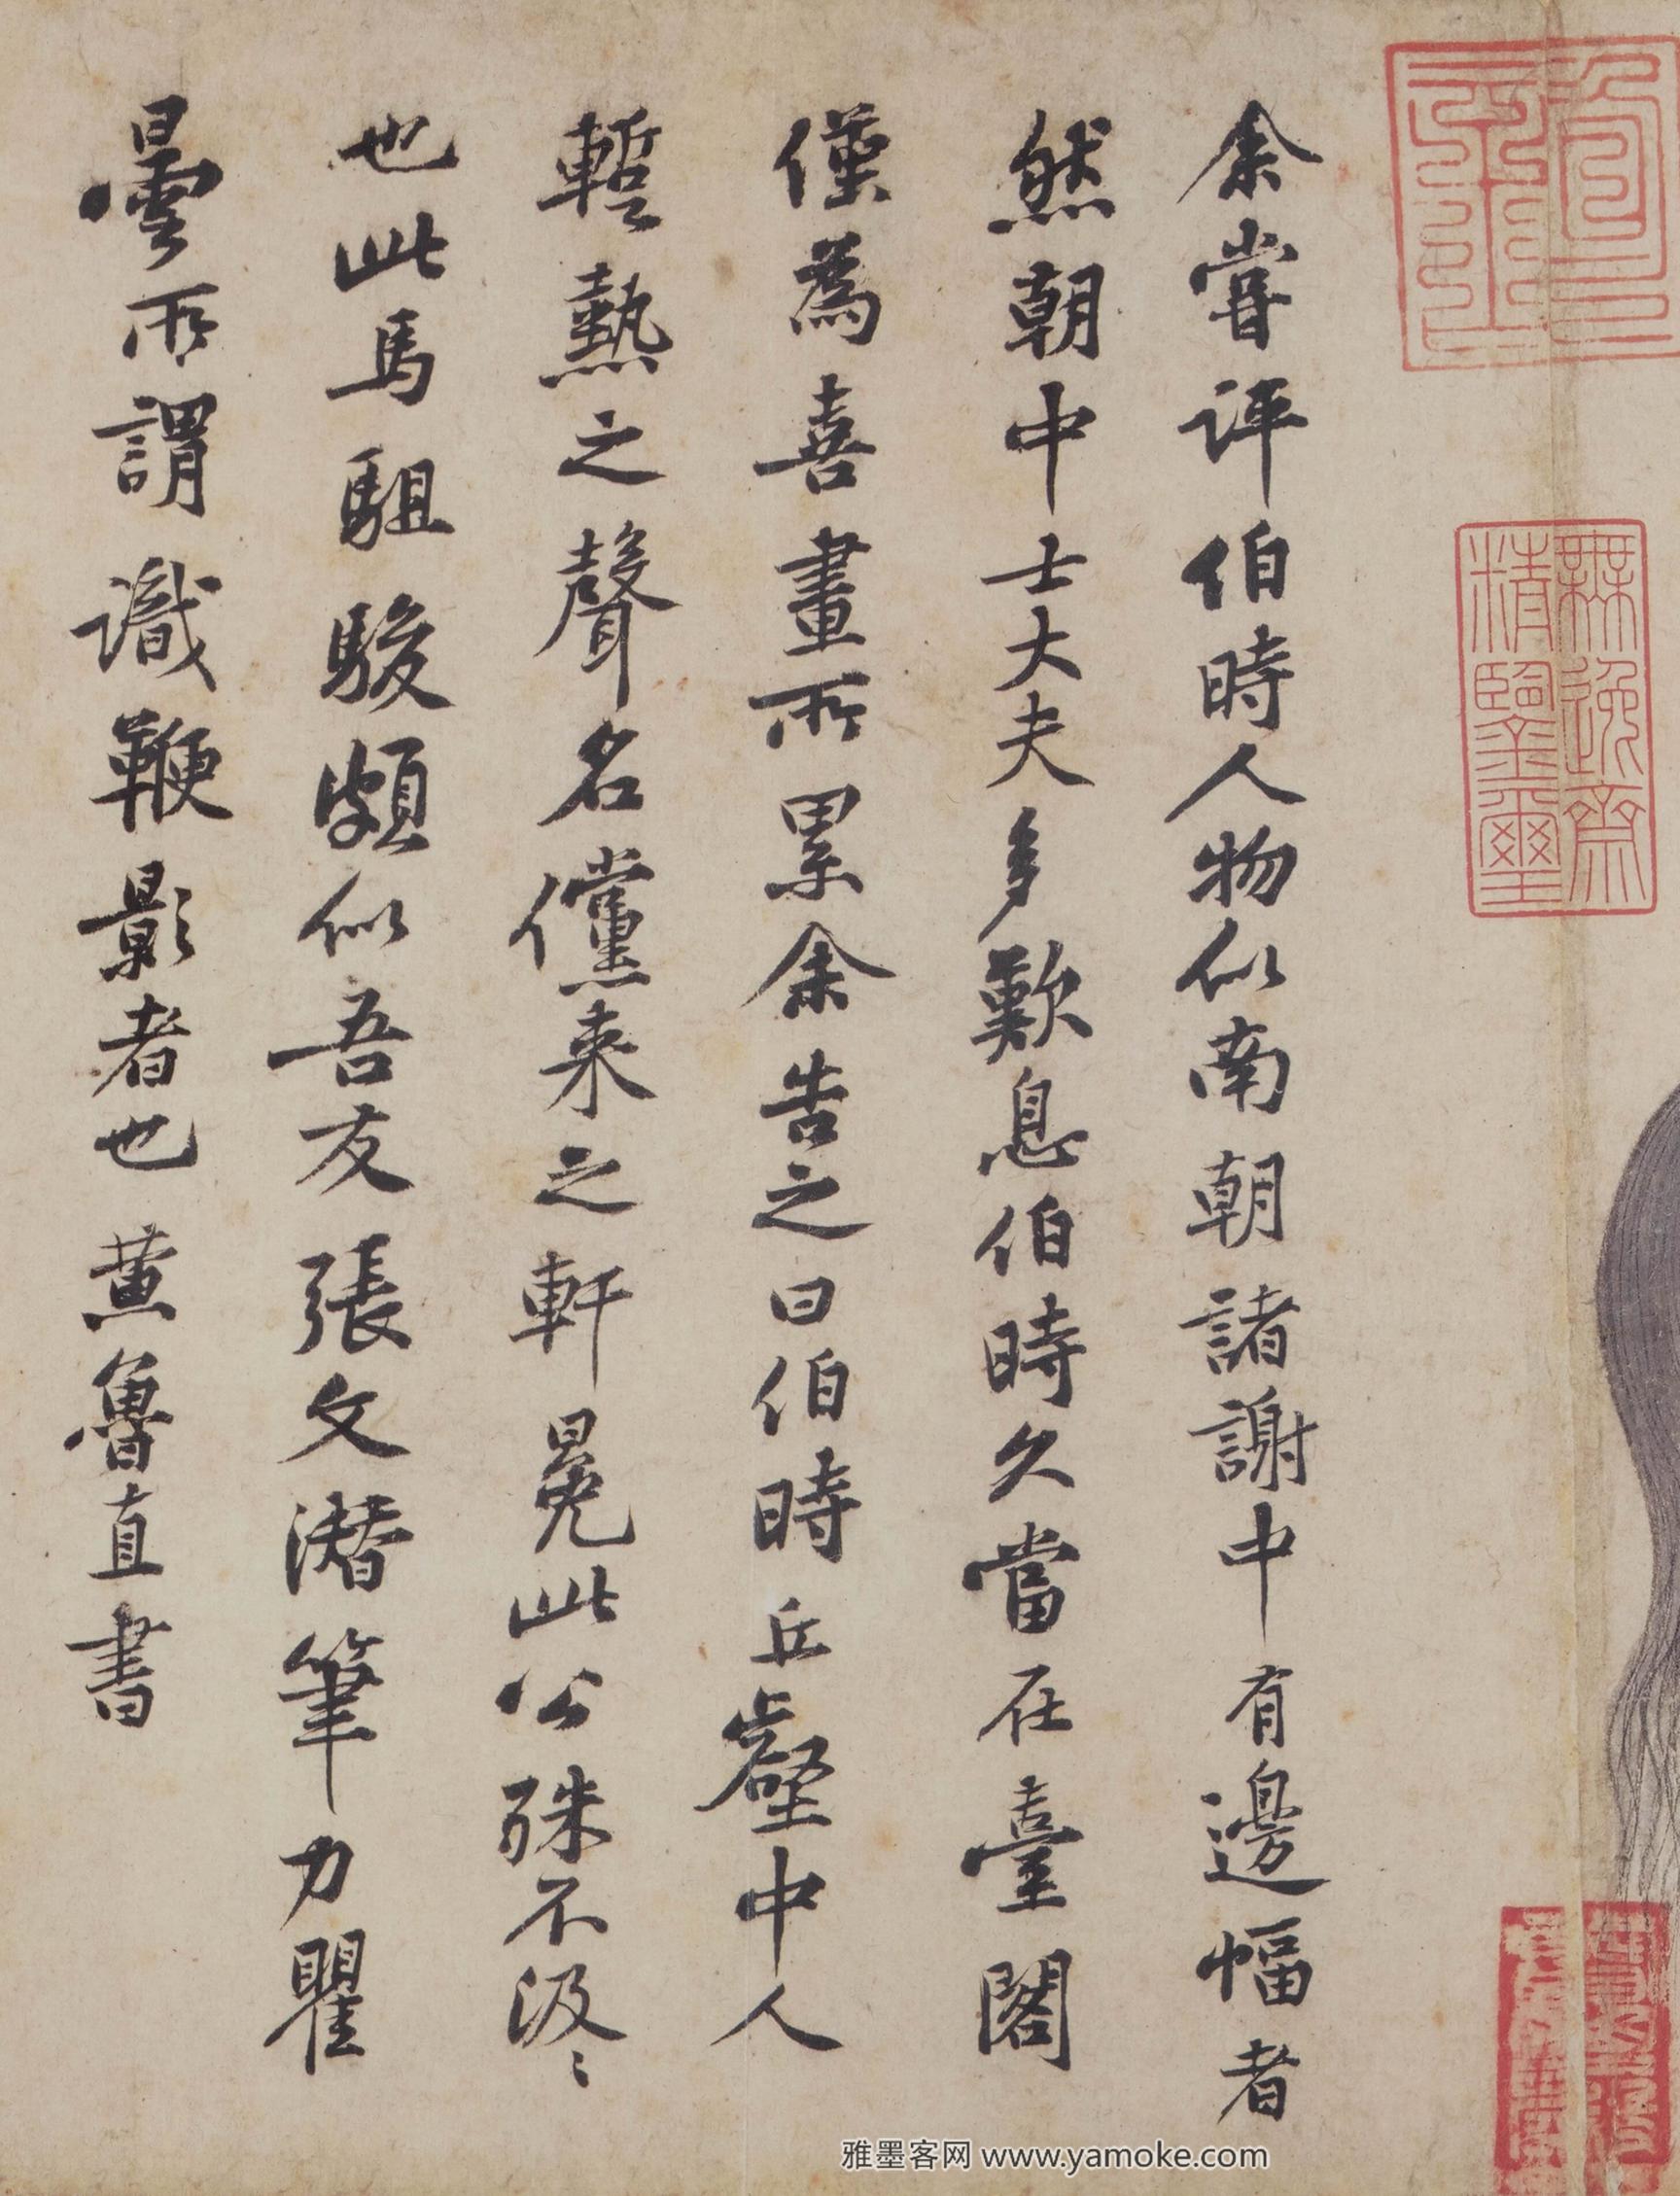 余嘗評伯時人物似南朝諸謝中有邊幅者
然朝中士大夫多歎息伯時久當在臺閣
僅為喜畫所累余告之曰伯時丘壑中人
暫熱之聲名儻来之軒冕此公殊不汲〻
也此馬駔駿頗似吾友張文潛筆力瞿
曇所謂識鞭影者也黃魯直書
無逸齋
精鑒璽
雅墨客网 www.yamoke.com